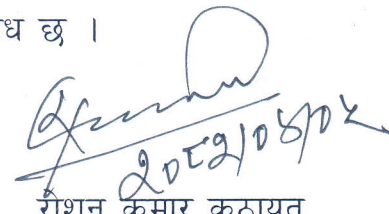 ध छ ।
२०८२/०४/०५
रोशन कुमार कठायत